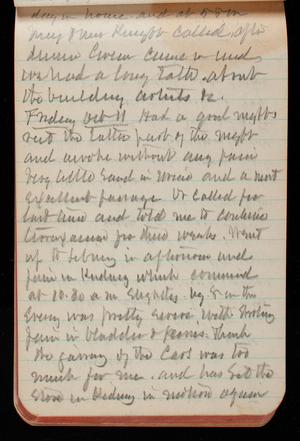 day in house and at 5 P.M.
Mary & Mrs Knight called, after
dinner Gwen came in and
we had a long talk about
the building artists &c.
Friday Oct 11 Had a good night's
rest the latter part of the night
and awoke without any pain
Very little sand in urine and a most
excellent passage Dr called for
last time and told me to continue
for three weeks. Went
up to library in afternoon and
pain in kidney which commenced
at 10.30 a.m. slightly by 8 in the
Evening was pretty severe, with
pain in bladder & penis. Think
the jarring of the cars was too
much for me and has set the
stone in kidney in motion again